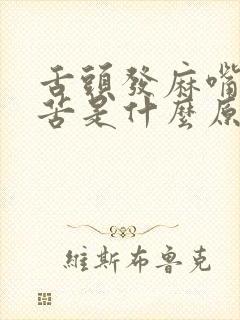 舌頭發麻嘴
苦是什麼原
維斯布魯克